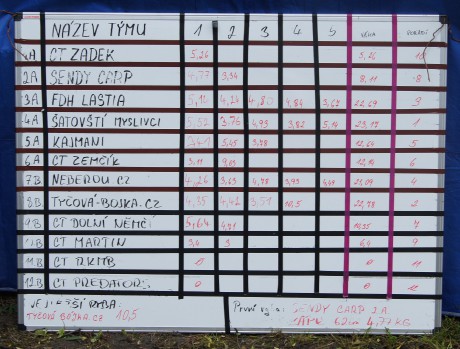 NÁZEV TÝMU 1 2 3 4 5 VÁHA
1A CT ZADEK 5,26 5,26
2A SENDY CARP 4,77 3,34 8,11 8
3A FDH LAŠTIA 5,10 4,27 4,80 4,84 3,67 22,69 3
4A ŠATOVŠTÍ MYSLIVCI 3,76 4,93 3,82 1
5A KAJMANI 5,45 3,78 12,64 5
6A CT ZEMČÍK 3,11 6
7B NEBEROU.CZ 4,24 3,63 4,78 3,93 21,09 4
8B TYČOVÁ-BOJKA.CZ 4,35 4,42 3,51 10,5 22,78 2
9B CT DOLNÍ NĚMČÍ 5,64 4,71 10,35 7
10B CT MARTIN 3,4 3 6,4 9
11B CT R.K.M.B. 0 0 11
12B CT PREDATORS 0 0 12
NEJVĚTŠÍ RYBA:
TYČOVÁ BOJKA.CZ 10,5
První SENDY CARP 2A
4,77 KG